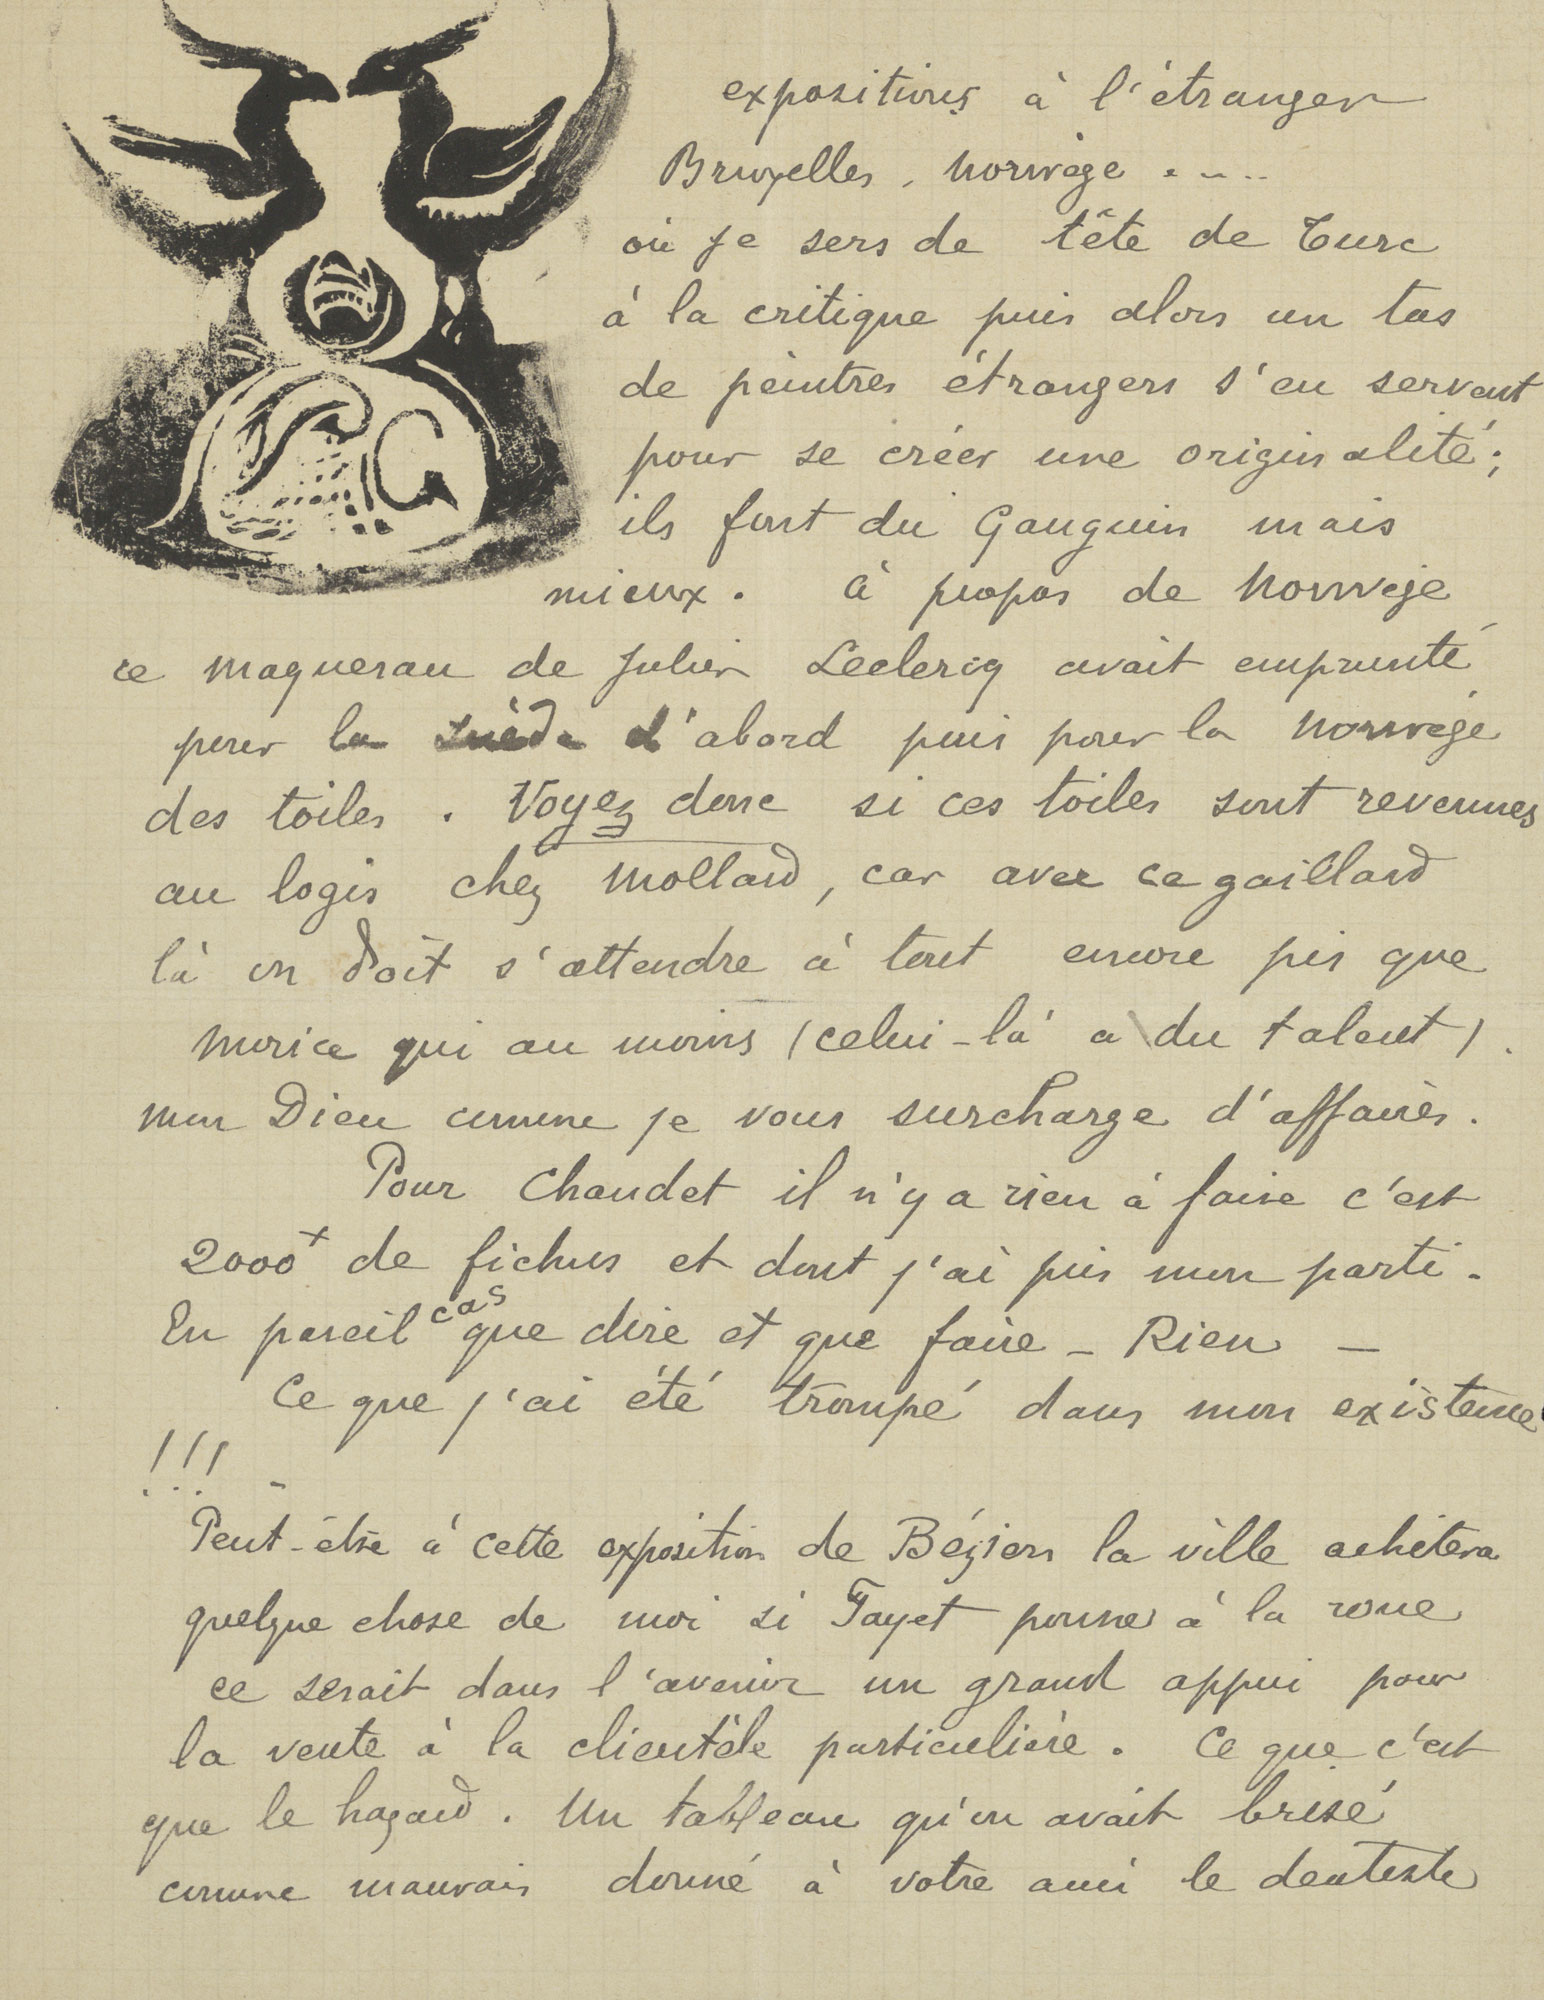 expositions à l'étranger
Bruxelles, Norwège . - ..
où je sers de tête de Turc
à la critique puis alors un tas
de peintres étrangers s'en servent
pour se créer une originalité;
ils font du Gauguin mais
mieux. à propos de Norwège
ce maquerau de Julien Leclercq avait emprunté
pour la Suède d'abord puis pour la Norwège
des toiles. Voyez donc si ces toiles sont revenues
au logis chez Mollard, car avec ce gaillard
là on doit s'attendre à tout encore pis que
Morice qui au moins (celui-là a du talent).
mon Dieu comme je vous surcharge d'affaires.
Pour Chaudet il n'y a rien à faire c'est
2000+ de fichus et dont j'ai pris mon parti.
En pareil cas que dire et que faire - Rien -
Ce que j'ai été trompé dans mon existence
!!! -
Peut-être à cette exposition de Béziers la ville achètera
quelque chose de moi si Fayet pousse à la roue
ce serait dans l'avenir un grand appui pour
la vente à la clientèle particulière. Ce que c'est
que le hazard. Un tableau qu'on avait brisé
comme mauvais donné à votre ami le dentiste
G